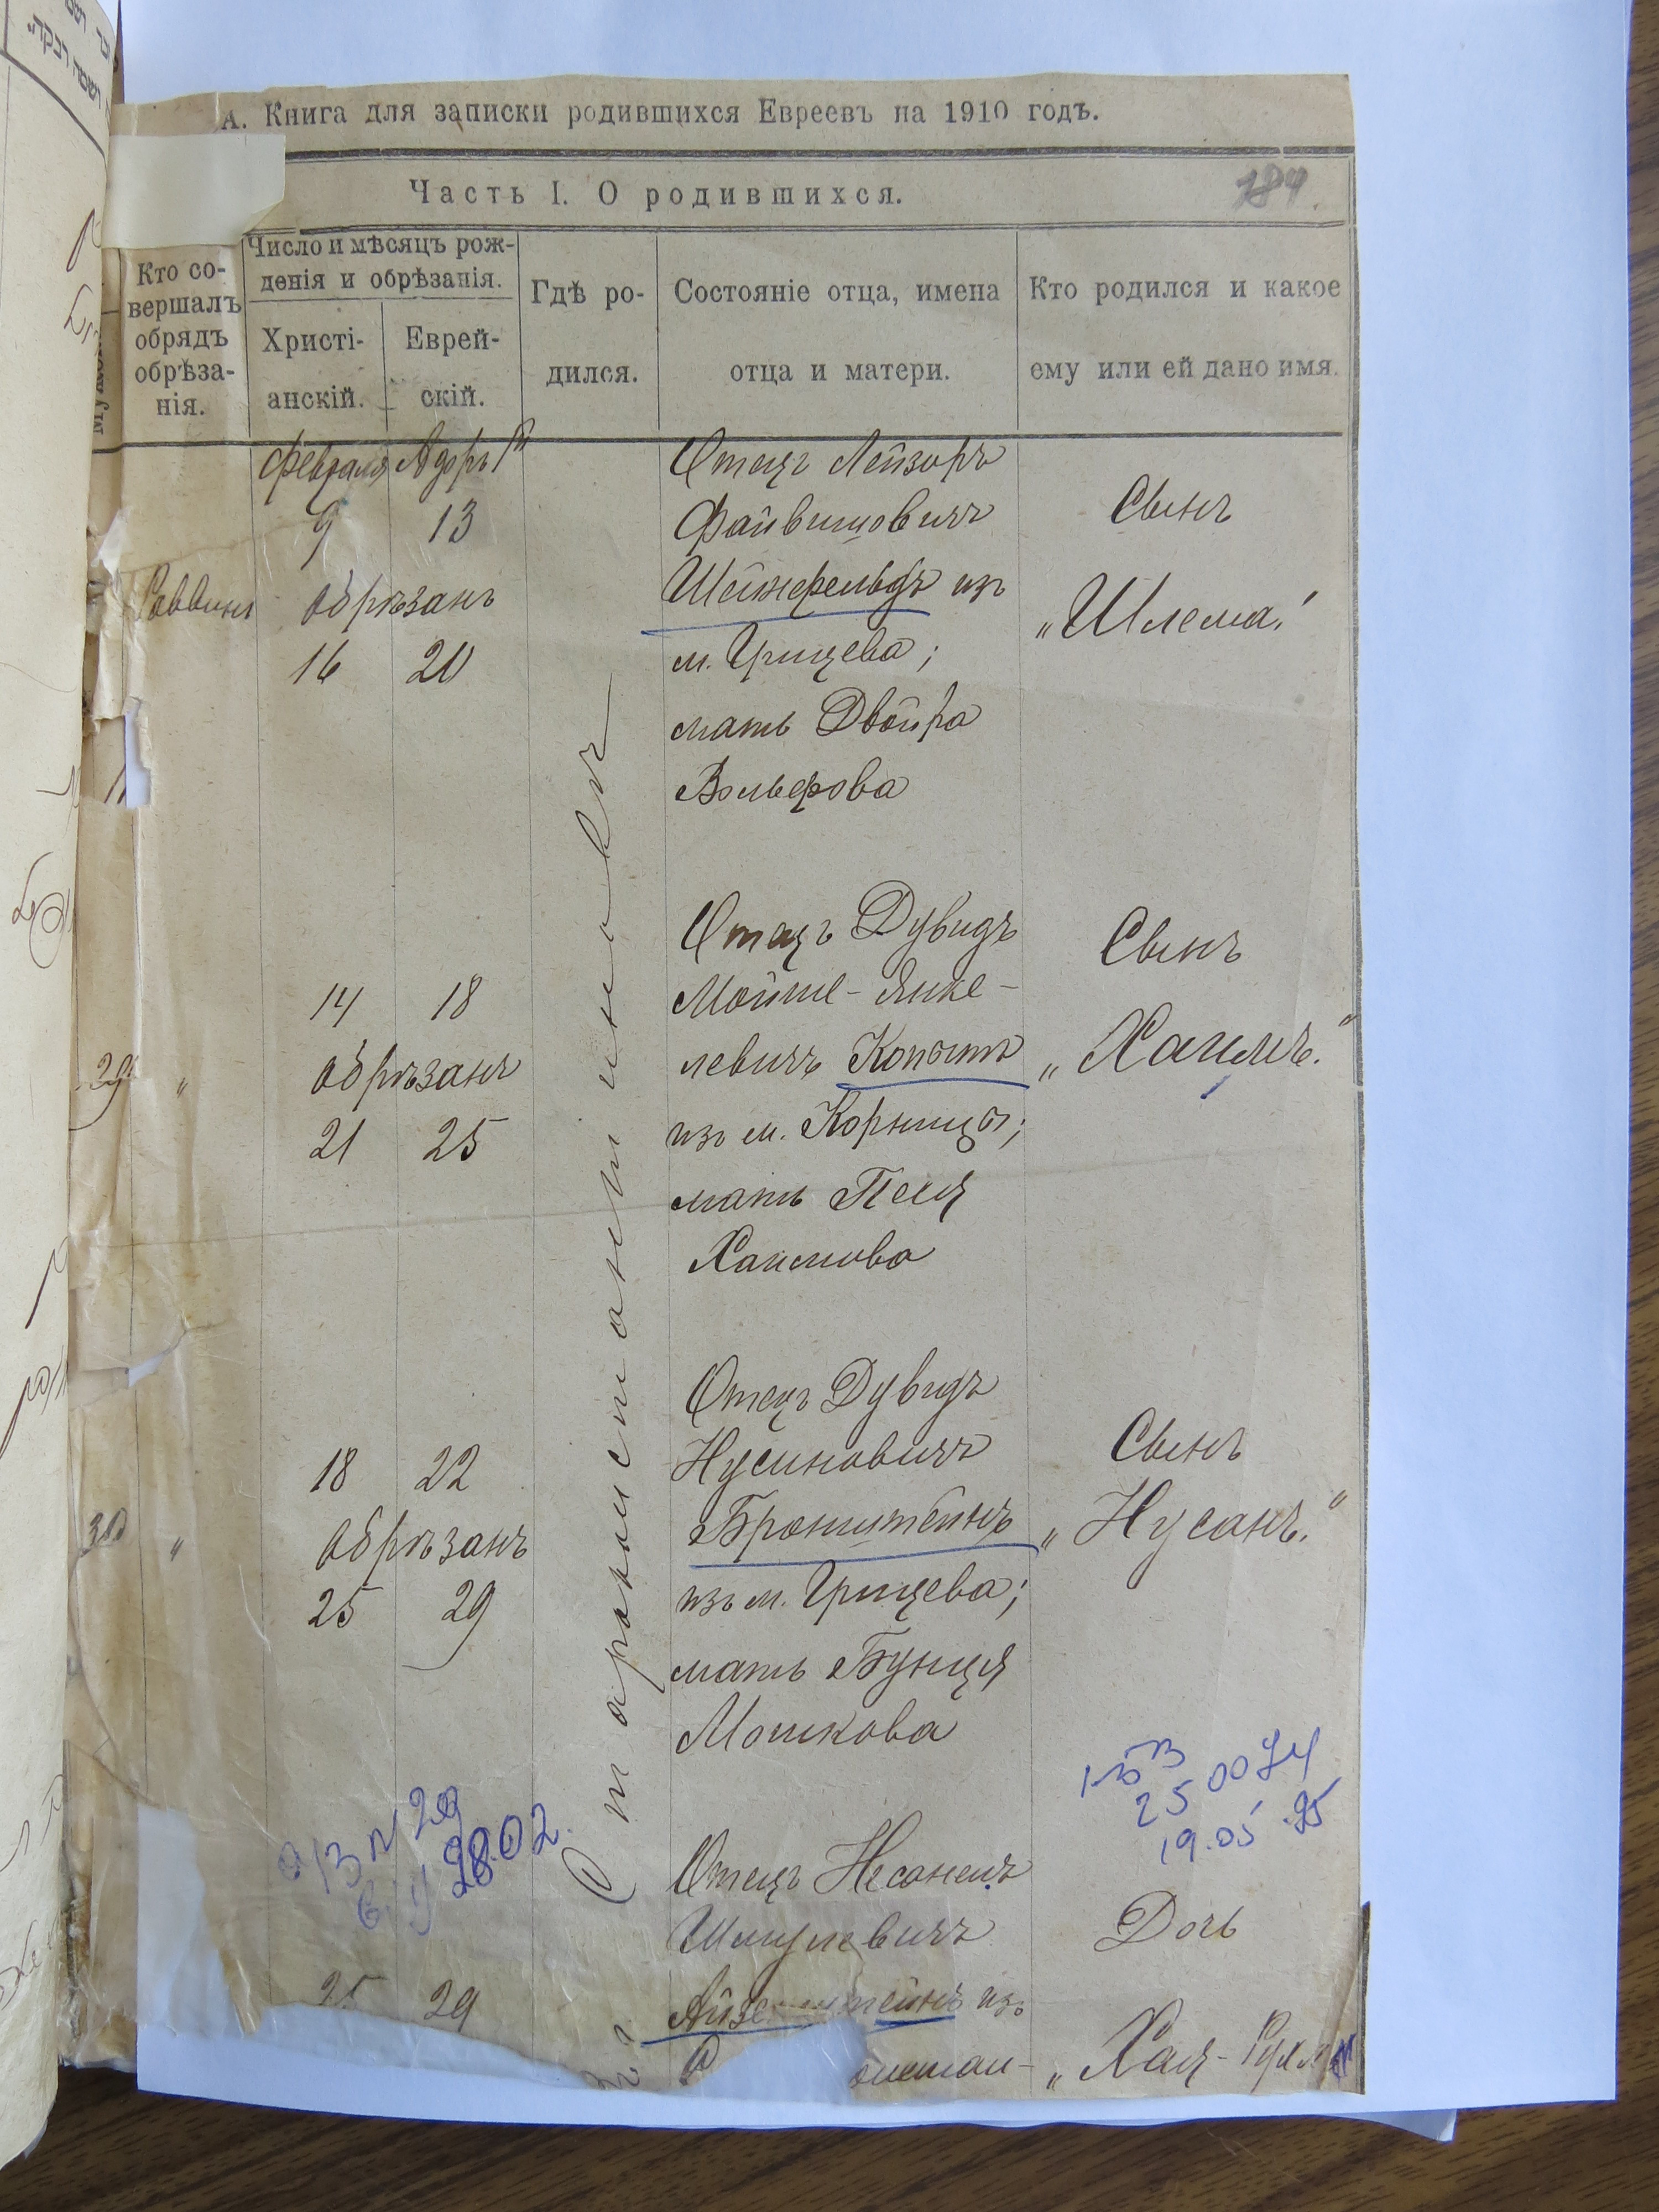 А. Книга для записки родившихся Евреевъ на 1910 годъ.
Часть I. О родившихся.
184.
Кто со-
вершалъ
обрядъ
обрѣза-
нія.
Число и мѣсяцъ рож-
денія и обрѣзанія.
Христі-
анскій.
Еврей-
скій.
Гдѣ ро-
дился.
Состояніе отца, имена
отца и матери.
Кто родился и какое
ему или ей дано имя.
Раввинъ
Февраля Адоръ
9 13
обрѣзанъ
16 20
Отецъ Лейзоръ
Файвишовичъ
Шейнфельдъ изъ
м. Грицева;
мать Двойра
Вольфова
Сынъ
„Шлема."
29 "
14 18
обрѣзанъ
21 25
Отецъ Дувидъ
Мойше-Янке-
левичъ Копытъ
изъ м. Корницы;
мать Песя
Хаимова
Сынъ
„Хаимъ."
30 "
18 22
обрѣзанъ
25 29
Отецъ Дувидъ
Нусиновичъ
Бронштейнъ
изъ м. Грицева;
мать Бунця
Мошкова
Сынъ
„Нусанъ."
Староконстантиновъ
28.02.
25 0074
19.05.25
25 29
Отецъ Несонель
Шмулевичъ
изъ
Дочь
„Хая-